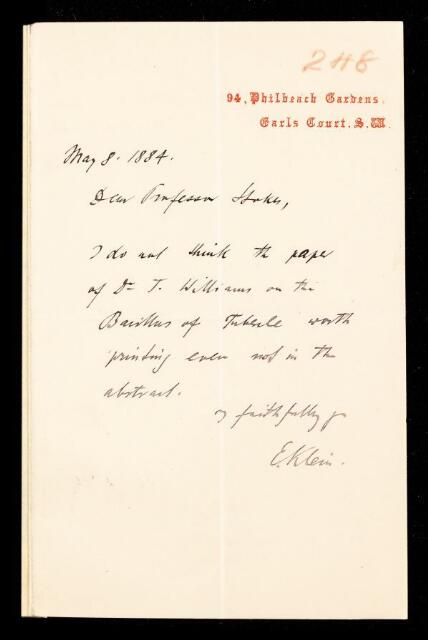 248
94, Philbeach Gardens.
Earls Court. S.W.
May 8. 1884.
Dear Professor Stokes,
I do not think the paper
of Dr T. Williams on the
Bacillus of Tubercle worth
printing even not in the
abstract.
faithfully yrs
E. Klein.